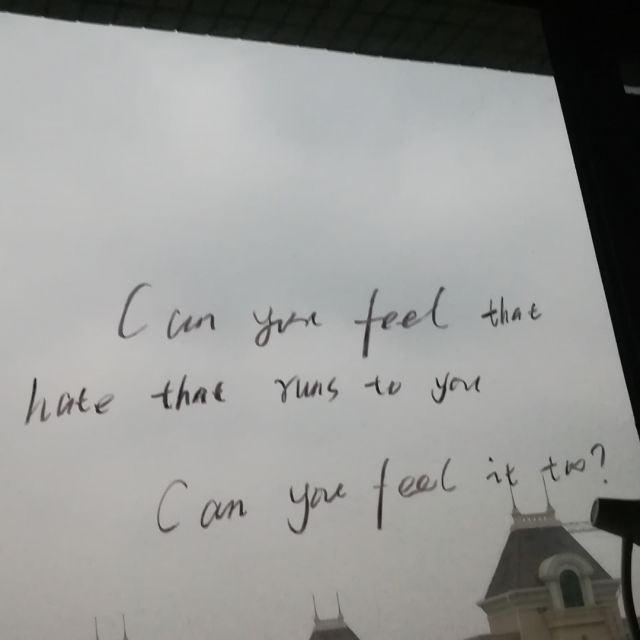 Can you feel that
hate that runs to you
Can you feel it too?